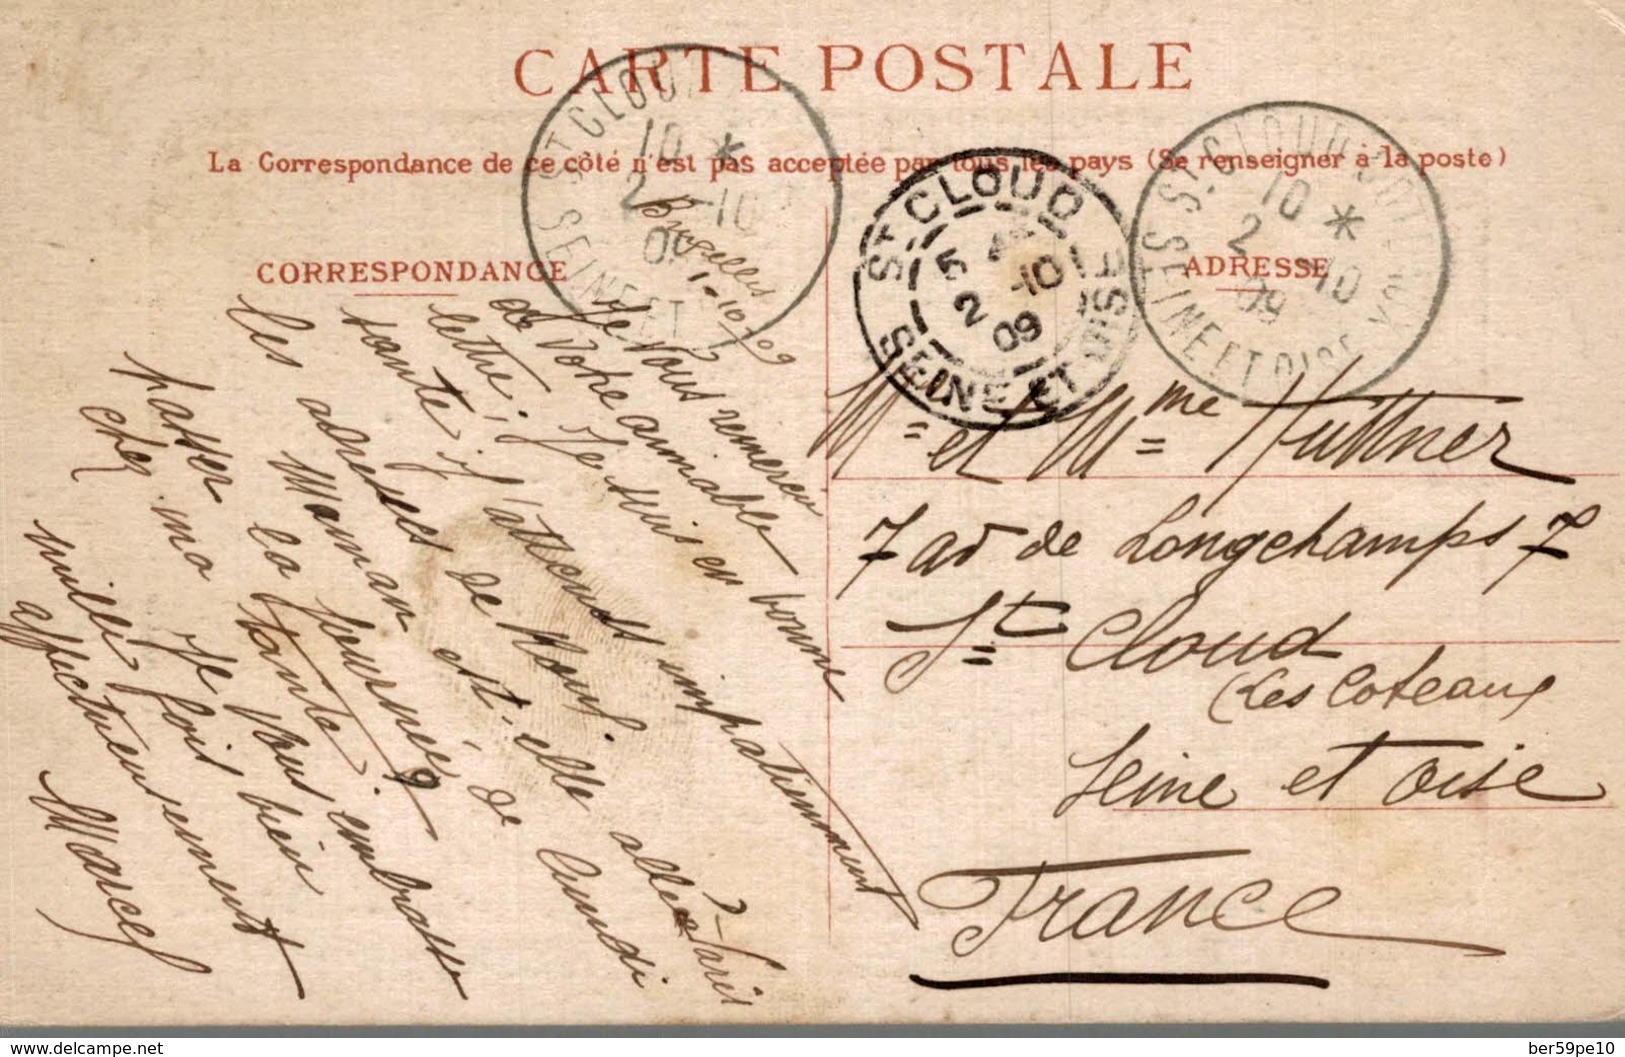 CARTE POSTALE
La Correspondance de ce côté n'est pas acceptée par tous les pays (Se renseigner à la poste)
CORRESPONDANCE
ADRESSE
ST CLOUD
10 *
2 -10
09
SEINE ET
ST CLOUD
5
2 -10
09
SEINE ET OISE
ST CLOUD
10 *
2 -10
09
SEINE ET OISE
Bruxelles
1-10-09
Je vous remercie
de votre aimable
lettre; Je suis en bonne
santé; J'attends impatiemment
les adresses de
Maman est-elle allée à Paris
la journée de lundi
passer la journée?
chez ma tante?
Je vous embrasse
mille fois bien
affectueusement
Marcel
Mr et Mme Huttner
7 av de Longchamps 7
St Cloud
(Les Coteaux
Seine et Oise
France
www.delcampe.net
ber59pe10